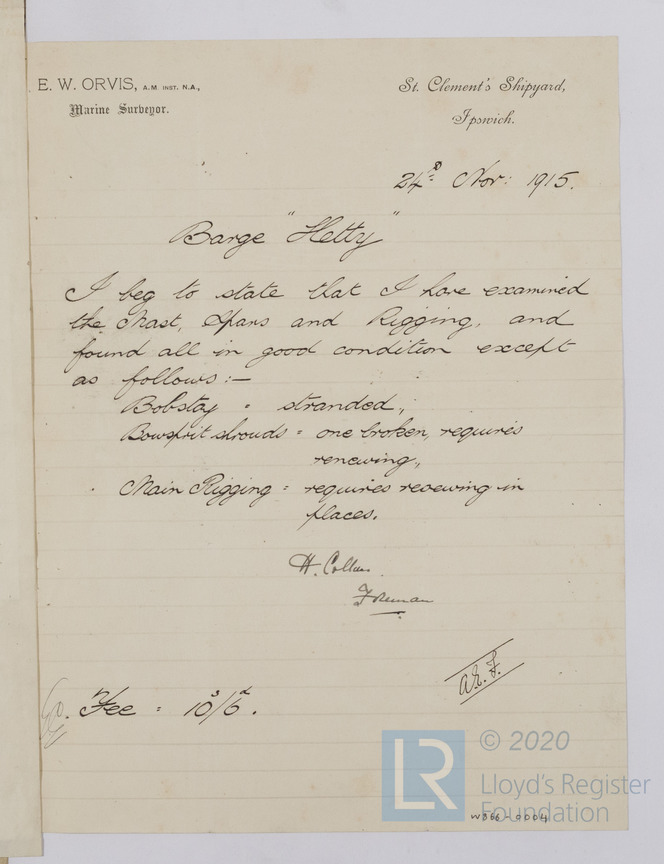 E. W. ORVIS, A.M INST. N.A.,
Marine Surveyor.
St. Clement's Shipyard,
Ipswich.
24th Nov: 1915.
Barge "Hetty"
I beg to state that I have examined
the Mast, Spars and Rigging, and
found all in good condition except
as follows:—
Bobstay = stranded,
Bowsprit shrouds = one broken, requires
renewing,
Main Rigging = requires reveewing in
places.
H. Collins.
Foreman
A.E.F.
Fee = 10s/6d.
LR © 2020
Lloyd's Register
Foundation
W366-0004